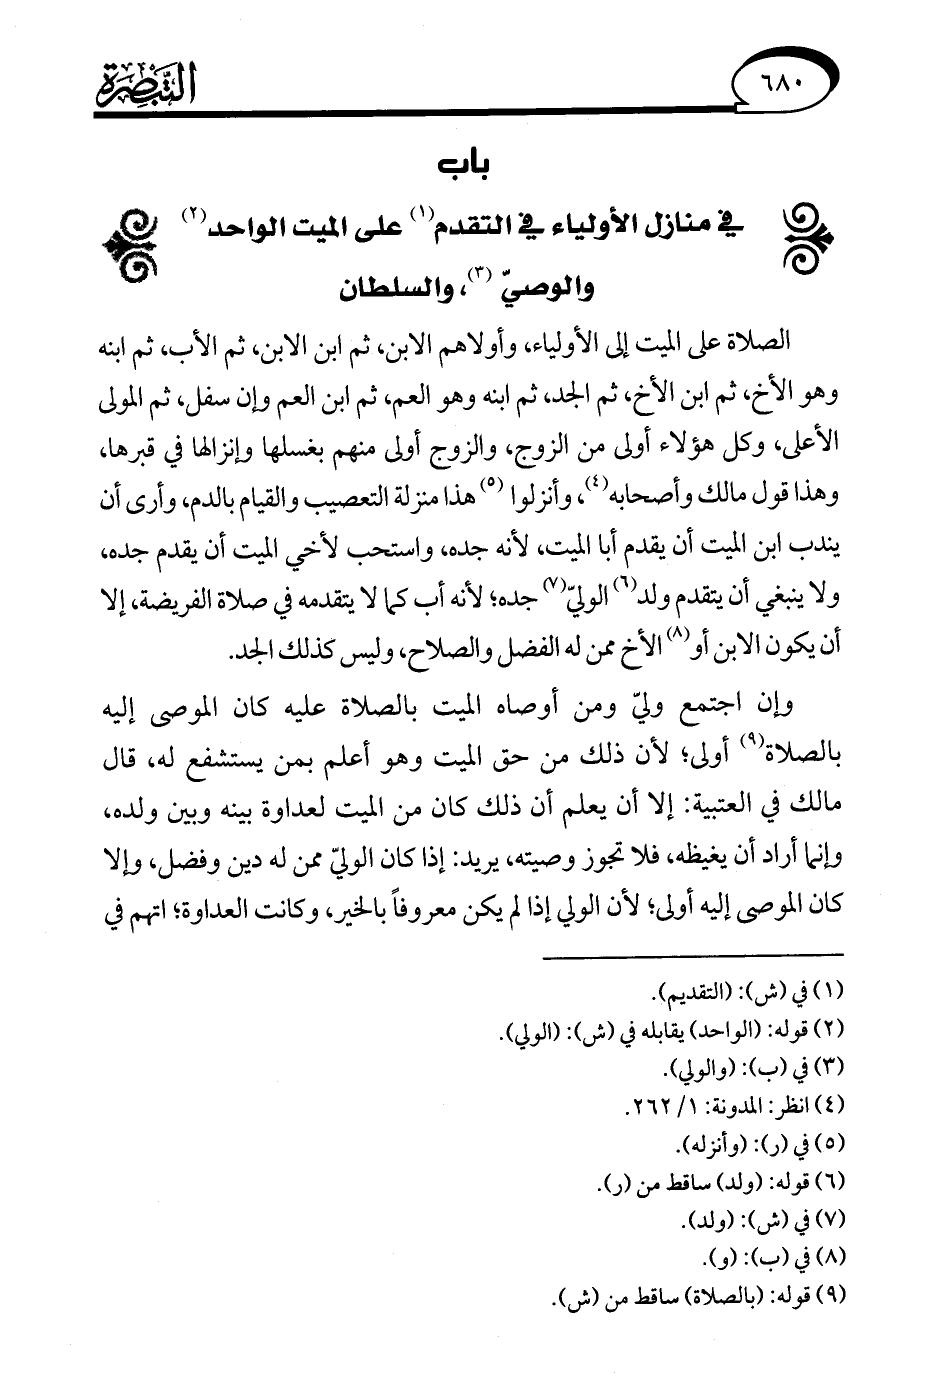 ٦٨٠
التبصرة
باب
في منازل الأولياء في التقدم(١) على الميت الواحد(٢)
والوصيّ(٣)، والسلطان
الصلاة على الميت إلى الأولياء، وأولاهم الابن، ثم ابن الابن، ثم الأب، ثم ابنه
وهو الأخ، ثم ابن الأخ، ثم الجد، ثم ابنه وهو العم، ثم ابن العم وإن سفل، ثم المولى
الأعلى، وكل هؤلاء أولى من الزوج، والزوج أولى منهم بغسلها وإنزالها في قبرها،
وهذا قول مالك وأصحابه(٤)، وأنزلوا(٥) هذا منزلة التعصيب والقيام بالدم، وأرى أن
يندب ابن الميت أن يقدم أبا الميت، لأنه جده، واستحب لأخي الميت أن يقدم جده،
ولا ينبغي أن يتقدم ولد(٦) الوليّ(٧) جده؛ لأنه أب كما لا يتقدمه في صلاة الفريضة، إلا
أن يكون الابن أو(٨) الأخ ممن له الفضل والصلاح، وليس كذلك الجد.
وإن اجتمع وليّ ومن أوصاه الميت بالصلاة عليه كان الموصى إليه
بالصلاة(٩) أولى؛ لأن ذلك من حق الميت وهو أعلم بمن يستشفع له، قال
مالك في العتبية: إلا أن يعلم أن ذلك كان من الميت لعداوة بينه وبين ولده،
وإنما أراد أن يغيظه، فلا تجوز وصيته، يريد: إذا كان الوليّ ممن له دين وفضل، وإلا
كان الموصى إليه أولى؛ لأن الولي إذا لم يكن معروفاً بالخير، وكانت العداوة؛ اتهم في
(١) في (ش): (التقديم).
(٢) قوله: (الواحد) يقابله في (ش): (الولي).
(٣) في (ب): (والولي).
(٤) انظر: المدونة: ١/ ٢٦٢.
(٥) في (ر): (وأنزله).
(٦) قوله: (ولد) ساقط من (ر).
(٧) في (ش): (ولد).
(٨) في (ب): (و).
(٩) قوله: (بالصلاة) ساقط من (ش).